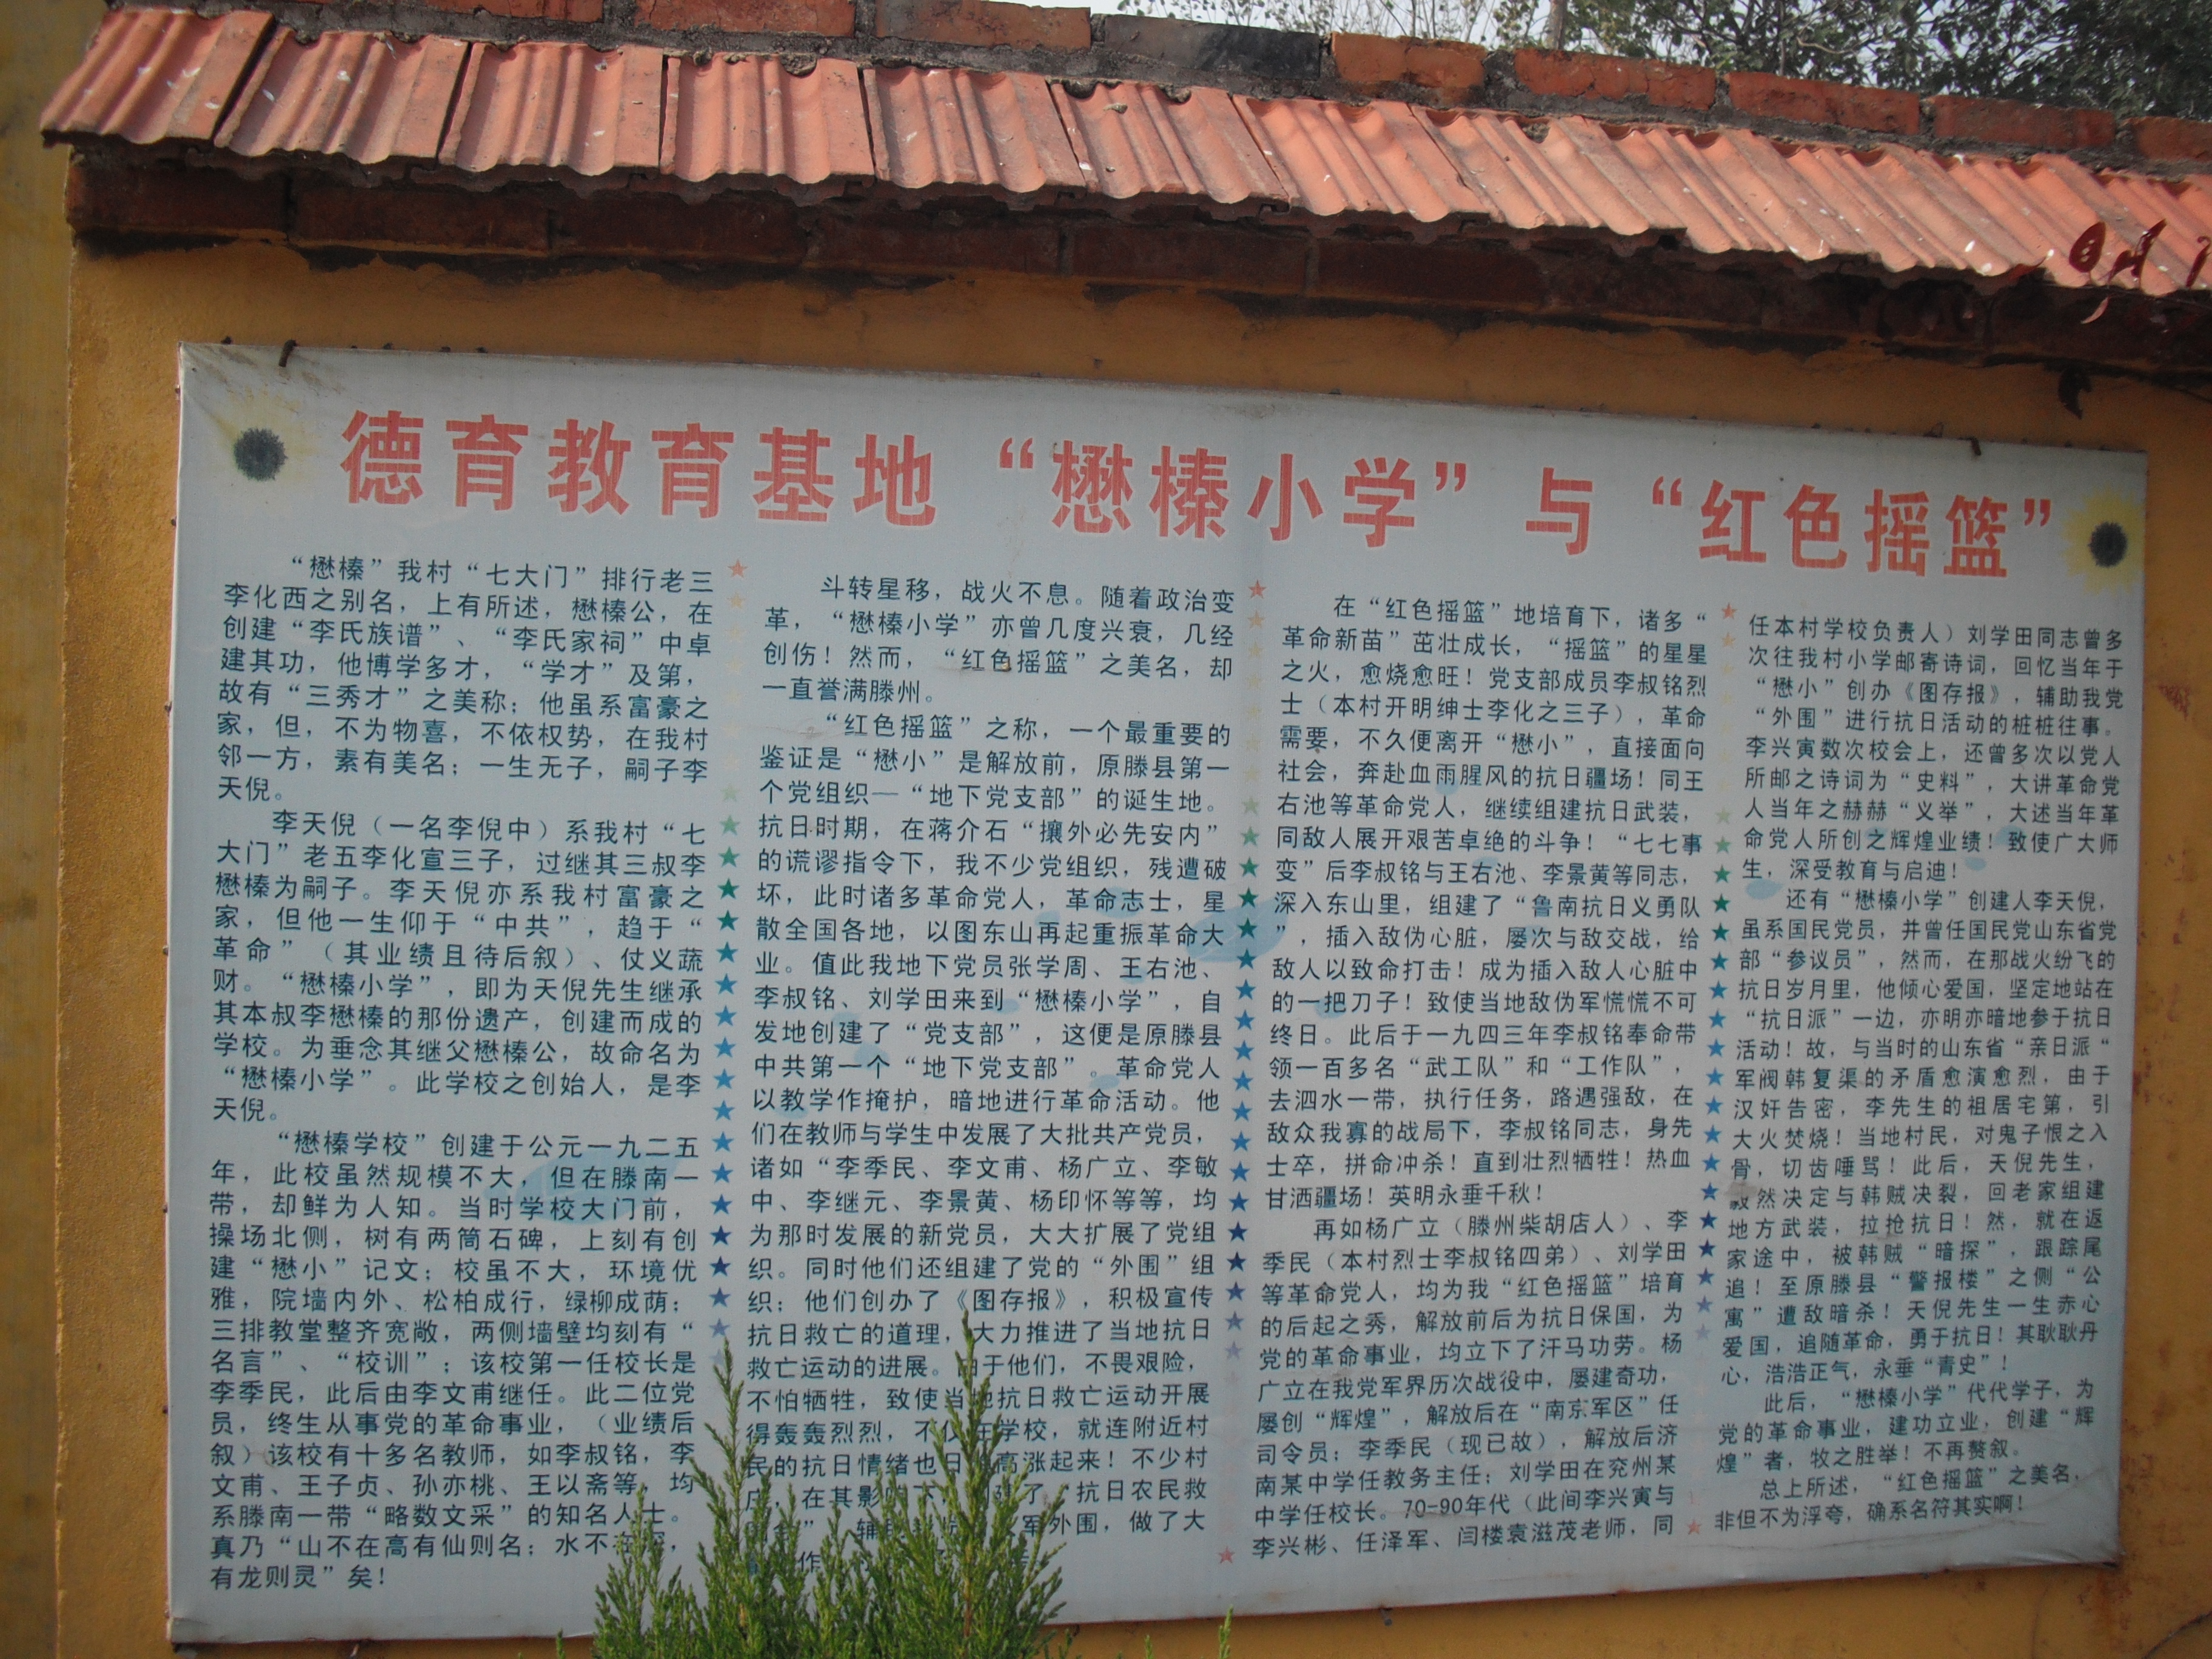 德育教育基地“懋榛小学”与“红色摇篮”
“懋榛”我村“七大门”排行老三
李化西之别名，上有所述，懋榛公，在
创建“李氏族谱”、“李氏家祠”中卓
建其功，他博学多才，“学才”及第，
故有“三秀才”之美称；他虽系富豪之
家，但，不为物喜，不依权势，在我村
邻一方，素有美名；一生无子，嗣子李
天倪。
李天倪（一名李倪中）系我村“七
大门”老五李化宣三子，过继其三叔李
懋榛为嗣子。李天倪亦系我村富豪之
家，但他一生仰于“中共”，趋于“
革命”（其业绩且待后叙）、仗义蔬
财。“懋榛小学”，即为天倪先生继承
其本叔李懋榛的那份遗产，创建而成的
学校。为垂念其继父懋榛公，故命名为
“懋榛小学”。此学校之创始人，是李
天倪。
“懋榛学校”创建于公元一九二五
年，此校虽然规模不大，但在滕南一
带，却鲜为人知。当时学校大门前，
操场北侧，树有两筒石碑，上刻有创
建“懋小”记文；校虽不大，环境优
雅，院墙内外、松柏成行，绿柳成荫；
三排教堂整齐宽敞，两侧墙壁均刻有“
名言”、“校训”；该校第一任校长是
李季民，此后由李文甫继任。此二位党
员，终生从事党的革命事业，（业绩后
叙）该校有十多名教师，如李叔铭，李
文甫、王子贞、孙亦桃、王以斋等，均
系滕南一带“略数文采”的知名人士。
真乃“山不在高有仙则名；水不在深，
有龙则灵”矣！
斗转星移，战火不息。随着政治变
革，“懋榛小学”亦曾几度兴衰，几经
创伤！然而，“红色摇篮”之美名，却
一直誉满滕州。
“红色摇篮”之称，一个最重要的
鉴证是“懋小”是解放前，原滕县第一
个党组织—“地下党支部”的诞生地。
抗日时期，在蒋介石“攘外必先安内”
的谎谬指令下，我不少党组织，残遭破
坏，此时诸多革命党人，革命志士，星
散全国各地，以图东山再起重振革命大
业。值此我地下党员张学周、王右池、
李叔铭、刘学田来到“懋榛小学”，自
发地创建了“党支部”，这便是原滕县
中共第一个“地下党支部”。革命党人
以教学作掩护，暗地进行革命活动。他
们在教师与学生中发展了大批共产党员，
诸如“李季民、李文甫、杨广立、李敏
中、李继元、李景黄、杨印怀等等，均
为那时发展的新党员，大大扩展了党组
织。同时他们还组建了党的“外围”组
织；他们创办了《图存报》，积极宣传
抗日救亡的道理，大力推进了当地抗日
救亡运动的进展。由于他们，不畏艰险，
不怕牺牲，致使当地抗日救亡运动开展
得轰轰烈烈，不仅在学校，就连附近村
民的抗日情绪也日 高涨起来！不少村
在其影 下， 了“抗日农民救
” 军外围，做了大
作
在“红色摇篮”地培育下，诸多“
革命新苗”茁壮成长，“摇篮”的星星
之火，愈烧愈旺！党支部成员李叔铭烈
士（本村开明绅士李化之三子），革命
需要，不久便离开“懋小”，直接面向
社会，奔赴血雨腥风的抗日疆场！同王
右池等革命党人，继续组建抗日武装，
同敌人展开艰苦卓绝的斗争！“七七事
变”后李叔铭与王右池、李景黄等同志，
深入东山里，组建了“鲁南抗日义勇队
”，插入敌伪心脏，屡次与敌交战，给
敌人以致命打击！成为插入敌人心脏中
的一把刀子！致使当地敌伪军慌慌不可
终日。此后于一九四三年李叔铭奉命带
领一百多名“武工队”和“工作队”，
去泗水一带，执行任务，路遇强敌，在
敌众我寡的战局下，李叔铭同志，身先
士卒，拼命冲杀！直到壮烈牺牲！热血
甘洒疆场！英明永垂千秋！
再如杨广立（滕州柴胡店人）、李
季民（本村烈士李叔铭四弟）、刘学田
等革命党人，均为我“红色摇篮”培育
的后起之秀，解放前后为抗日保国，为
党的革命事业，均立下了汗马功劳。杨
广立在我党军界历次战役中，屡建奇功，
屡创“辉煌”，解放后在“南京军区”任
司令员；李季民（现已故），解放后济
南某中学任教务主任；刘学田在兖州某
中学任校长。70-90年代（此间李兴寅与
李兴彬、任泽军、闫楼袁滋茂老师，同
任本村学校负责人）刘学田同志曾多
次往我村小学邮寄诗词，回忆当年于
“懋小”创办《图存报》，辅助我党
“外围”进行抗日活动的桩桩往事。
李兴寅数次校会上，还曾多次以党人
所邮之诗词为“史料”，大讲革命党
人当年之赫赫“义举”，大述当年革
命党人所创之辉煌业绩！致使广大师
生，深受教育与启迪！
还有“懋榛小学”创建人李天倪，
虽系国民党员，并曾任国民党山东省党
部“参议员”，然而，在那战火纷飞的
抗日岁月里，他倾心爱国，坚定地站在
“抗日派”一边，亦明亦暗地参于抗日
活动！故，与当时的山东省“亲日派“
军阀韩复渠的矛盾愈演愈烈，由于
汉奸告密，李先生的祖居宅第，引
大火焚烧！当地村民，对鬼子恨之入
骨，切齿唾骂！此后，天倪先生，
毅然决定与韩贼决裂，回老家组建
地方武装，拉抢抗日！然，就在返
家途中，被韩贼“暗探”，跟踪尾
追！至原滕县“警报楼”之侧“公
寓”遭敌暗杀！天倪先生一生赤心
爱国，追随革命，勇于抗日！其耿耿丹
心，浩浩正气，永垂“青史”！
此后，“懋榛小学”代代学子，为
党的革命事业，建功立业，创建“辉
煌”者，牧之胜举！不再赘叙。
总上所述，“红色摇篮”之美名，
非但不为浮夸，确系名符其实啊！